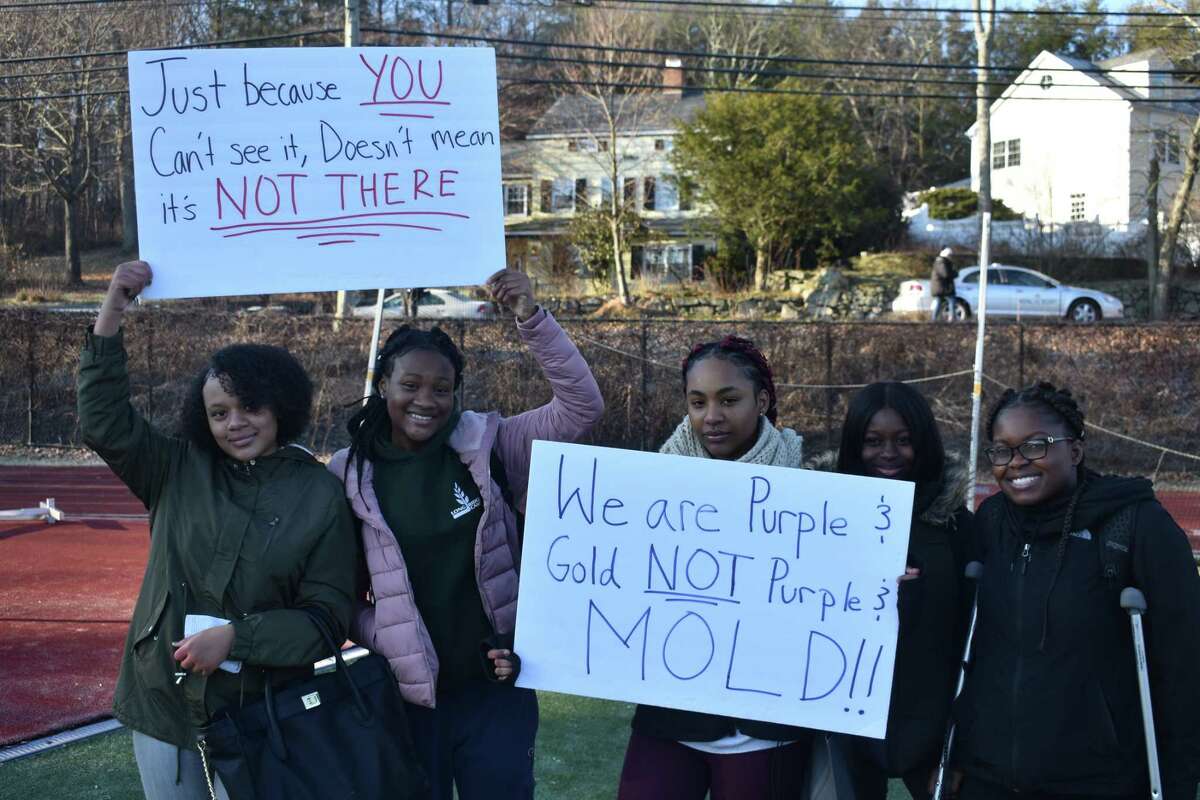 Just because YOU
Can't see it, Doesn't mean
it's NOT THERE
We are Purple &
Gold NOT Purple &
MOLD!!